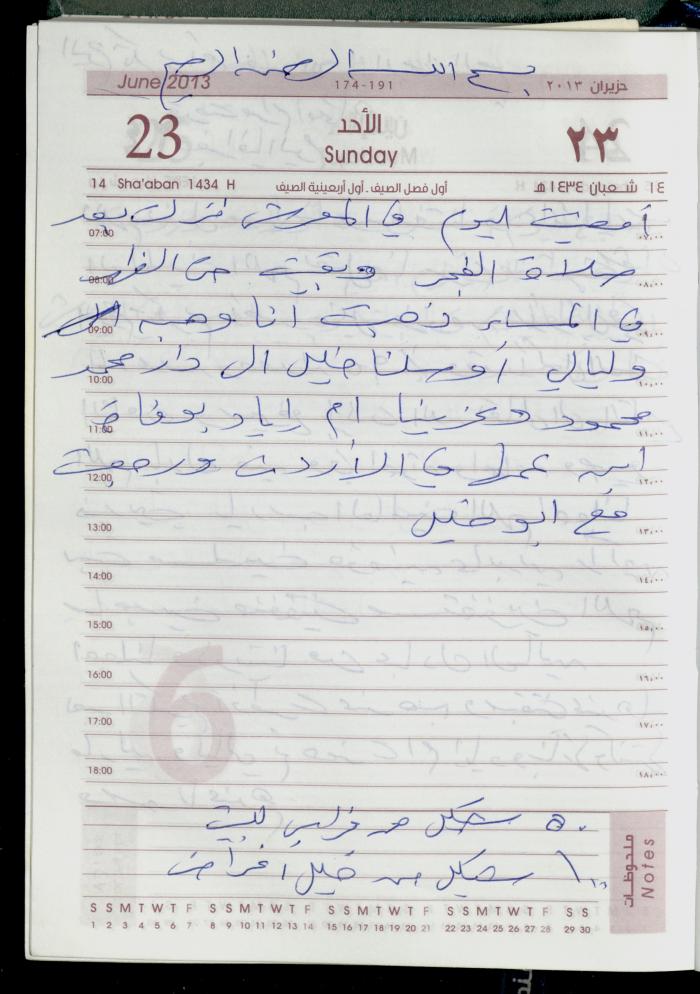 بسم الله الرحمن الرحيم
June 2013 174-191 حزيران ٢٠١٣
23 الأحد ٢٣
Sunday
14 Sha'aban 1434 H أول فصل الصيف . أول أربعينية الصيف ١٤ شعبان ١٤٣٤ هـ
أمضيت اليوم في المعرش نزلت بعد
07:00 ٠٧,٠٠
صلاة الفجر وبقيت حتى
08:00 ٠٨,٠٠
في المساء ذهبت أنا وهبه
09:00 ٠٩,٠٠
وليالي أوصلنا خليل الى دار محمد
10:00 ١٠,٠٠
محمود وعزينا ام اياد بوفاة
11:00 ١١,٠٠
ابن عمها في الأردن ورجعت
12:00 ١٢,٠٠
مع ابو خليل
13:00 ١٣,٠٠
14:00 ١٤,٠٠
15:00 ١٥,٠٠
16:00 ١٦,٠٠
17:00 ١٧,٠٠
18:00 ١٨,٠٠
6
٥٠ شيكل من
١٠٠ شيكل من خليل اغراض
ملحوظات
Notes
S S M T W T F S S M T W T F S S M T W T F S S M T W T F S S
1 2 3 4 5 6 7 8 9 10 11 12 13 14 15 16 17 18 19 20 21 22 23 24 25 26 27 28 29 30